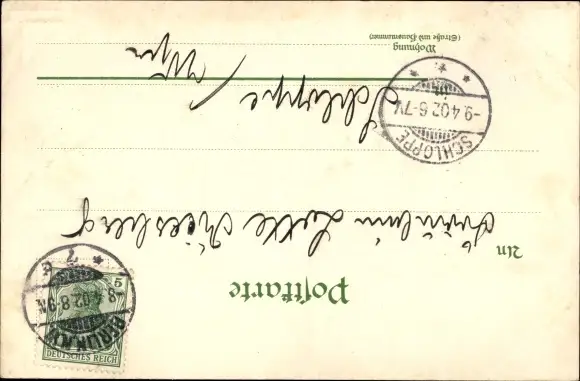 Postkarte
An
Fräulein Lotte Kiesberg
Schloppe /
Wpr
Wohnung
(Straße und Hausnummer)
SCHLOPPE
-9.4.02.6-7V.
BERLIN
8.4.02.8-9N.
5
DEUTSCHES REICH